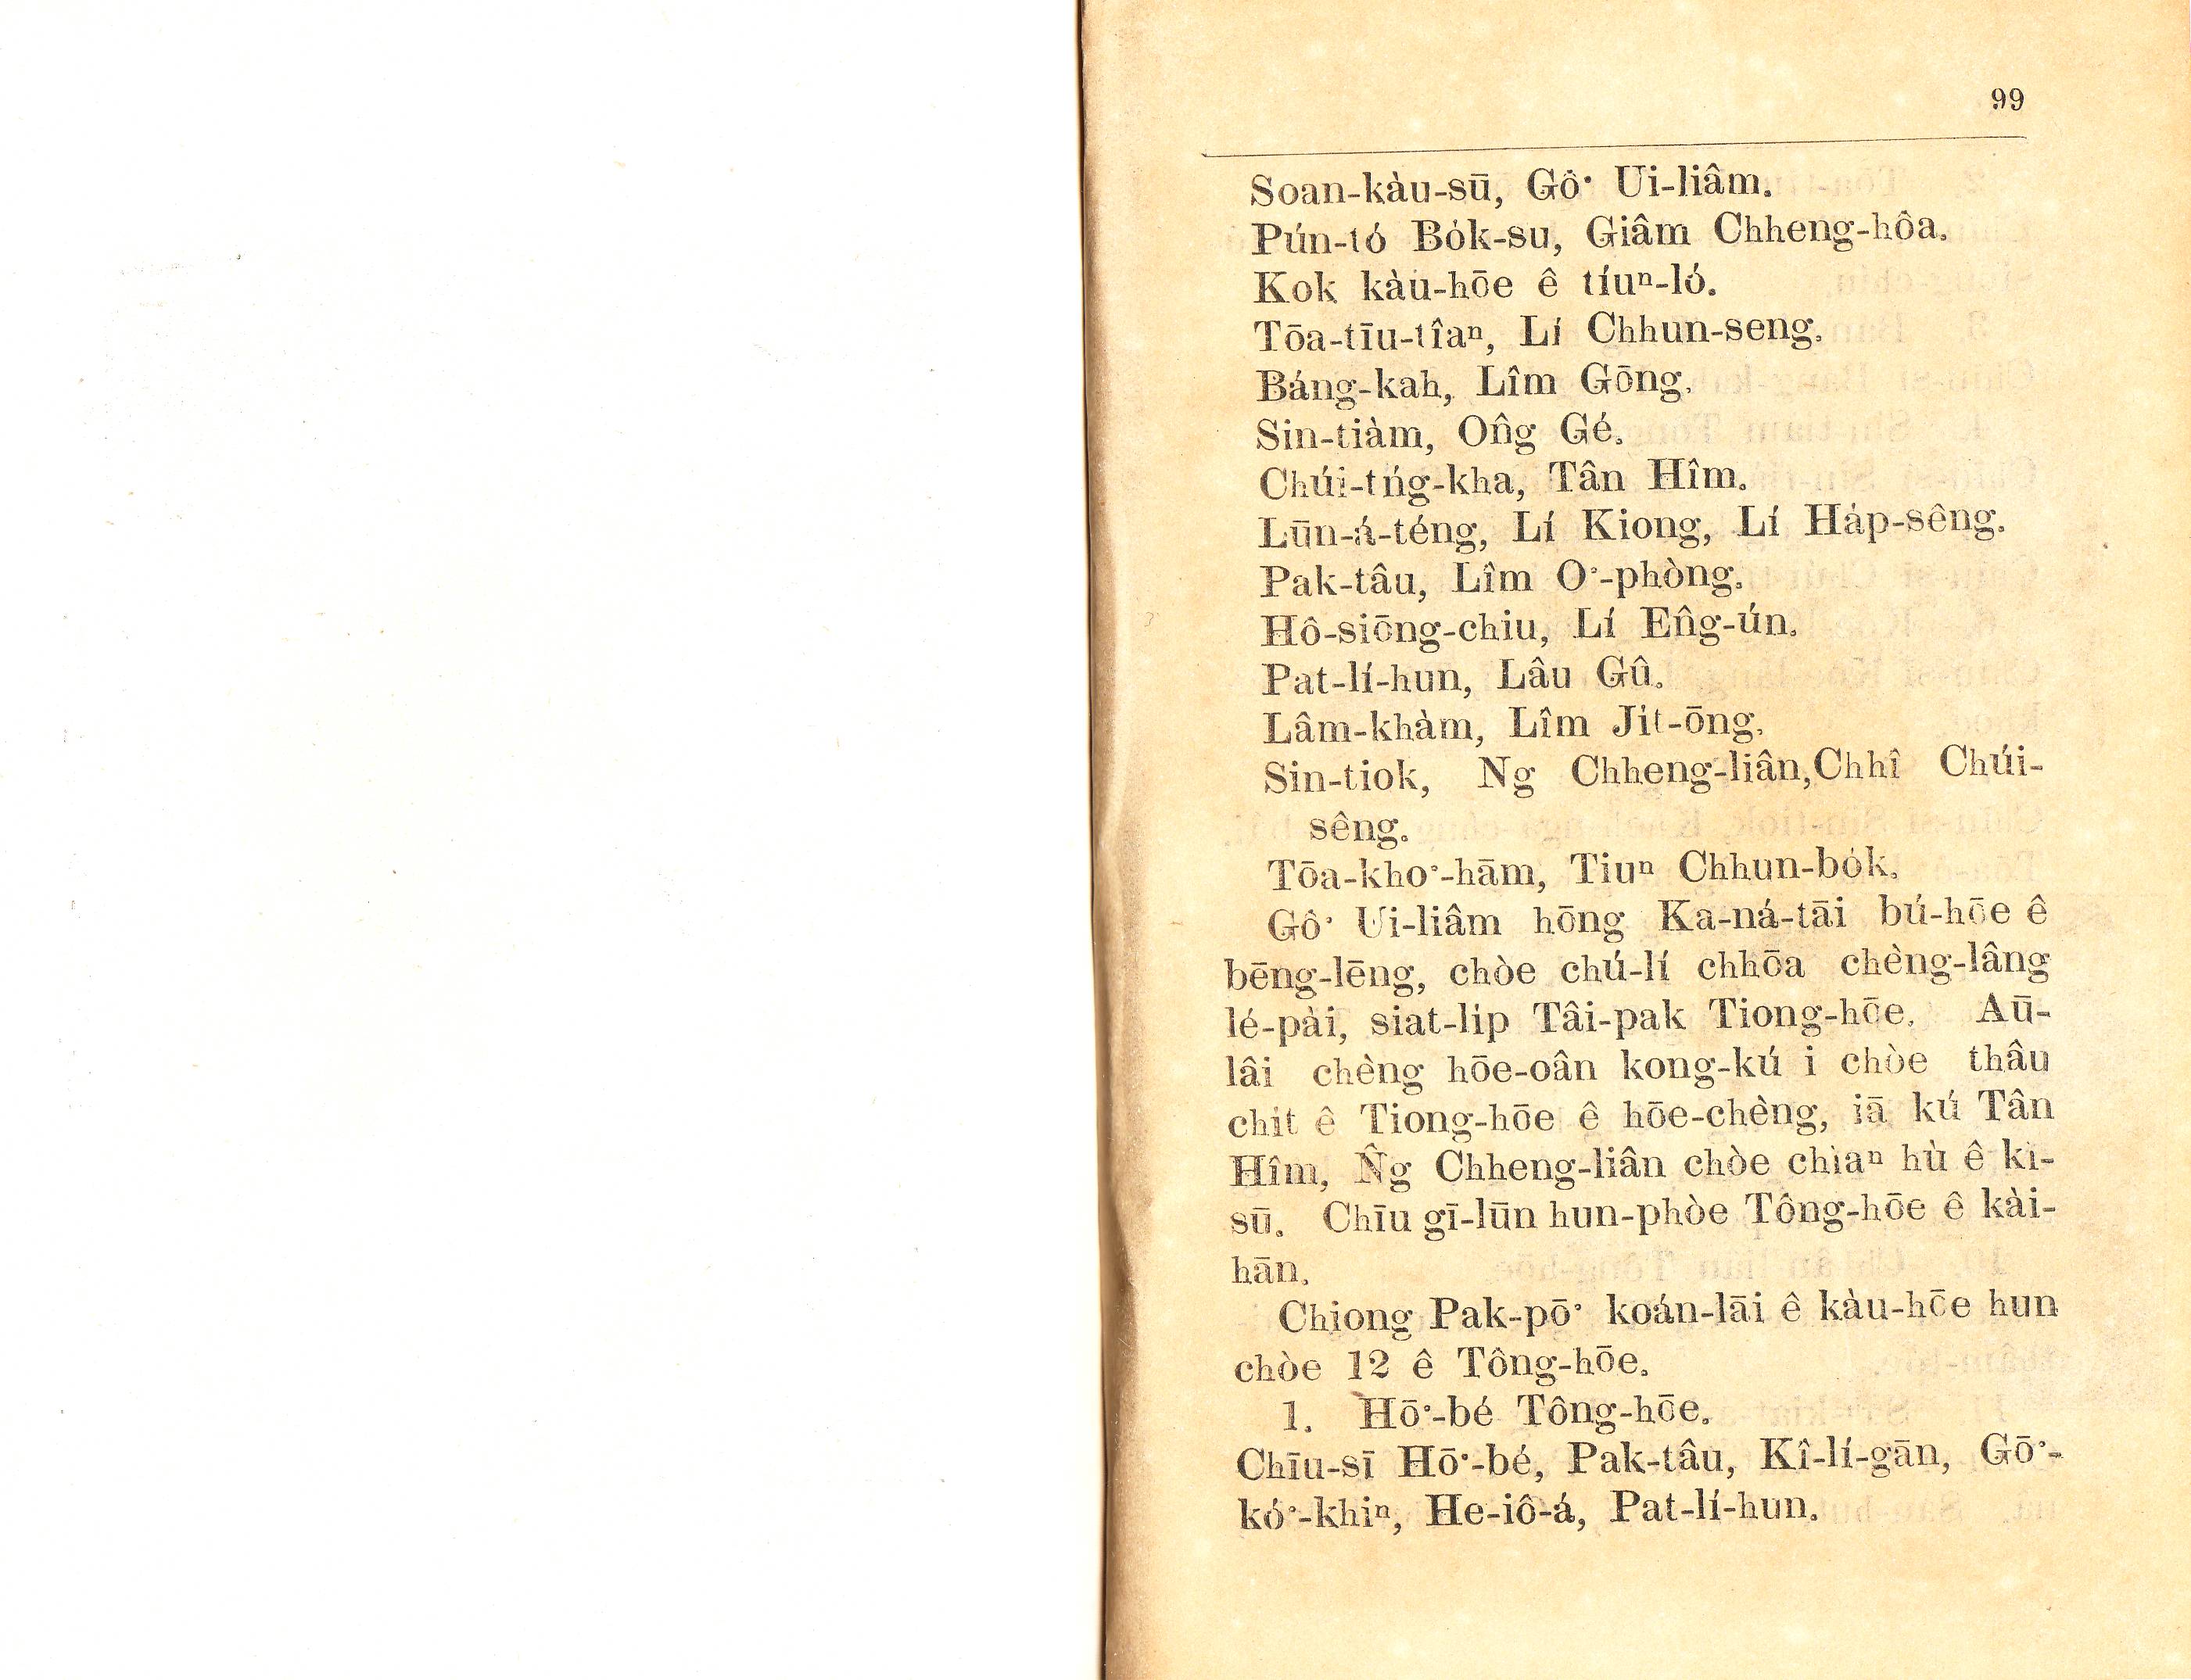 99
Soan-kàu-sū, Gô͘ Ui-liâm.
Pún-tó Bo̍k-su, Giâm Chheng-hôa.
Kok kàu-hōe ê tíuⁿ-ló.
Tōa-tīu-tîaⁿ, Lí Chhun-seng.
Báng-kah, Lîm Gōng.
Sin-tiàm, On̂g Gé.
Chúi-tńg-kha, Tân Hîm.
Lūn-á-téng, Lí Kiong, Lí Ha̍p-sêng.
Pak-tâu, Lîm O͘-phòng.
Hô-siōng-chiu, Lí En̂g-ún.
Pat-lí-hun, Lâu Gû.
Lâm-khàm, Lîm Ji̍t-ōng.
Sin-tiok, Ng Chheng-liân,Chhî Chúi-
sêng.
Tōa-kho͘-hām, Tiuⁿ Chhun-bo̍k.
Gô͘ Ui-liâm hōng Ka-ná-tāi bú-hōe ê
bēng-lēng, chòe chú-lí chhōa chèng-lâng
lé-pài, siat-li̍p Tâi-pak Tiong-hōe. Aū-
lâi chèng hōe-oân kong-kú i chòe thâu
chi̍t ê Tiong-hōe ê hōe-chèng, iā kú Tân
Hîm, N̂g Chheng-liân chòe chìaⁿ hù ê kì-
sū. Chīu gī-lūn hun-phòe Tông-hōe ê kài-
hān.
Chiong Pak-pō͘ koán-lāi ê kàu-hōe hun
chòe 12 ê Tông-hōe.
1. Hō͘-bé Tông-hōe.
Chīu-sī Hō͘-bé, Pak-tâu, Kî-lí-gān, Gō͘-
kó͘-khiⁿ, He-iô-á, Pat-lí-hun.